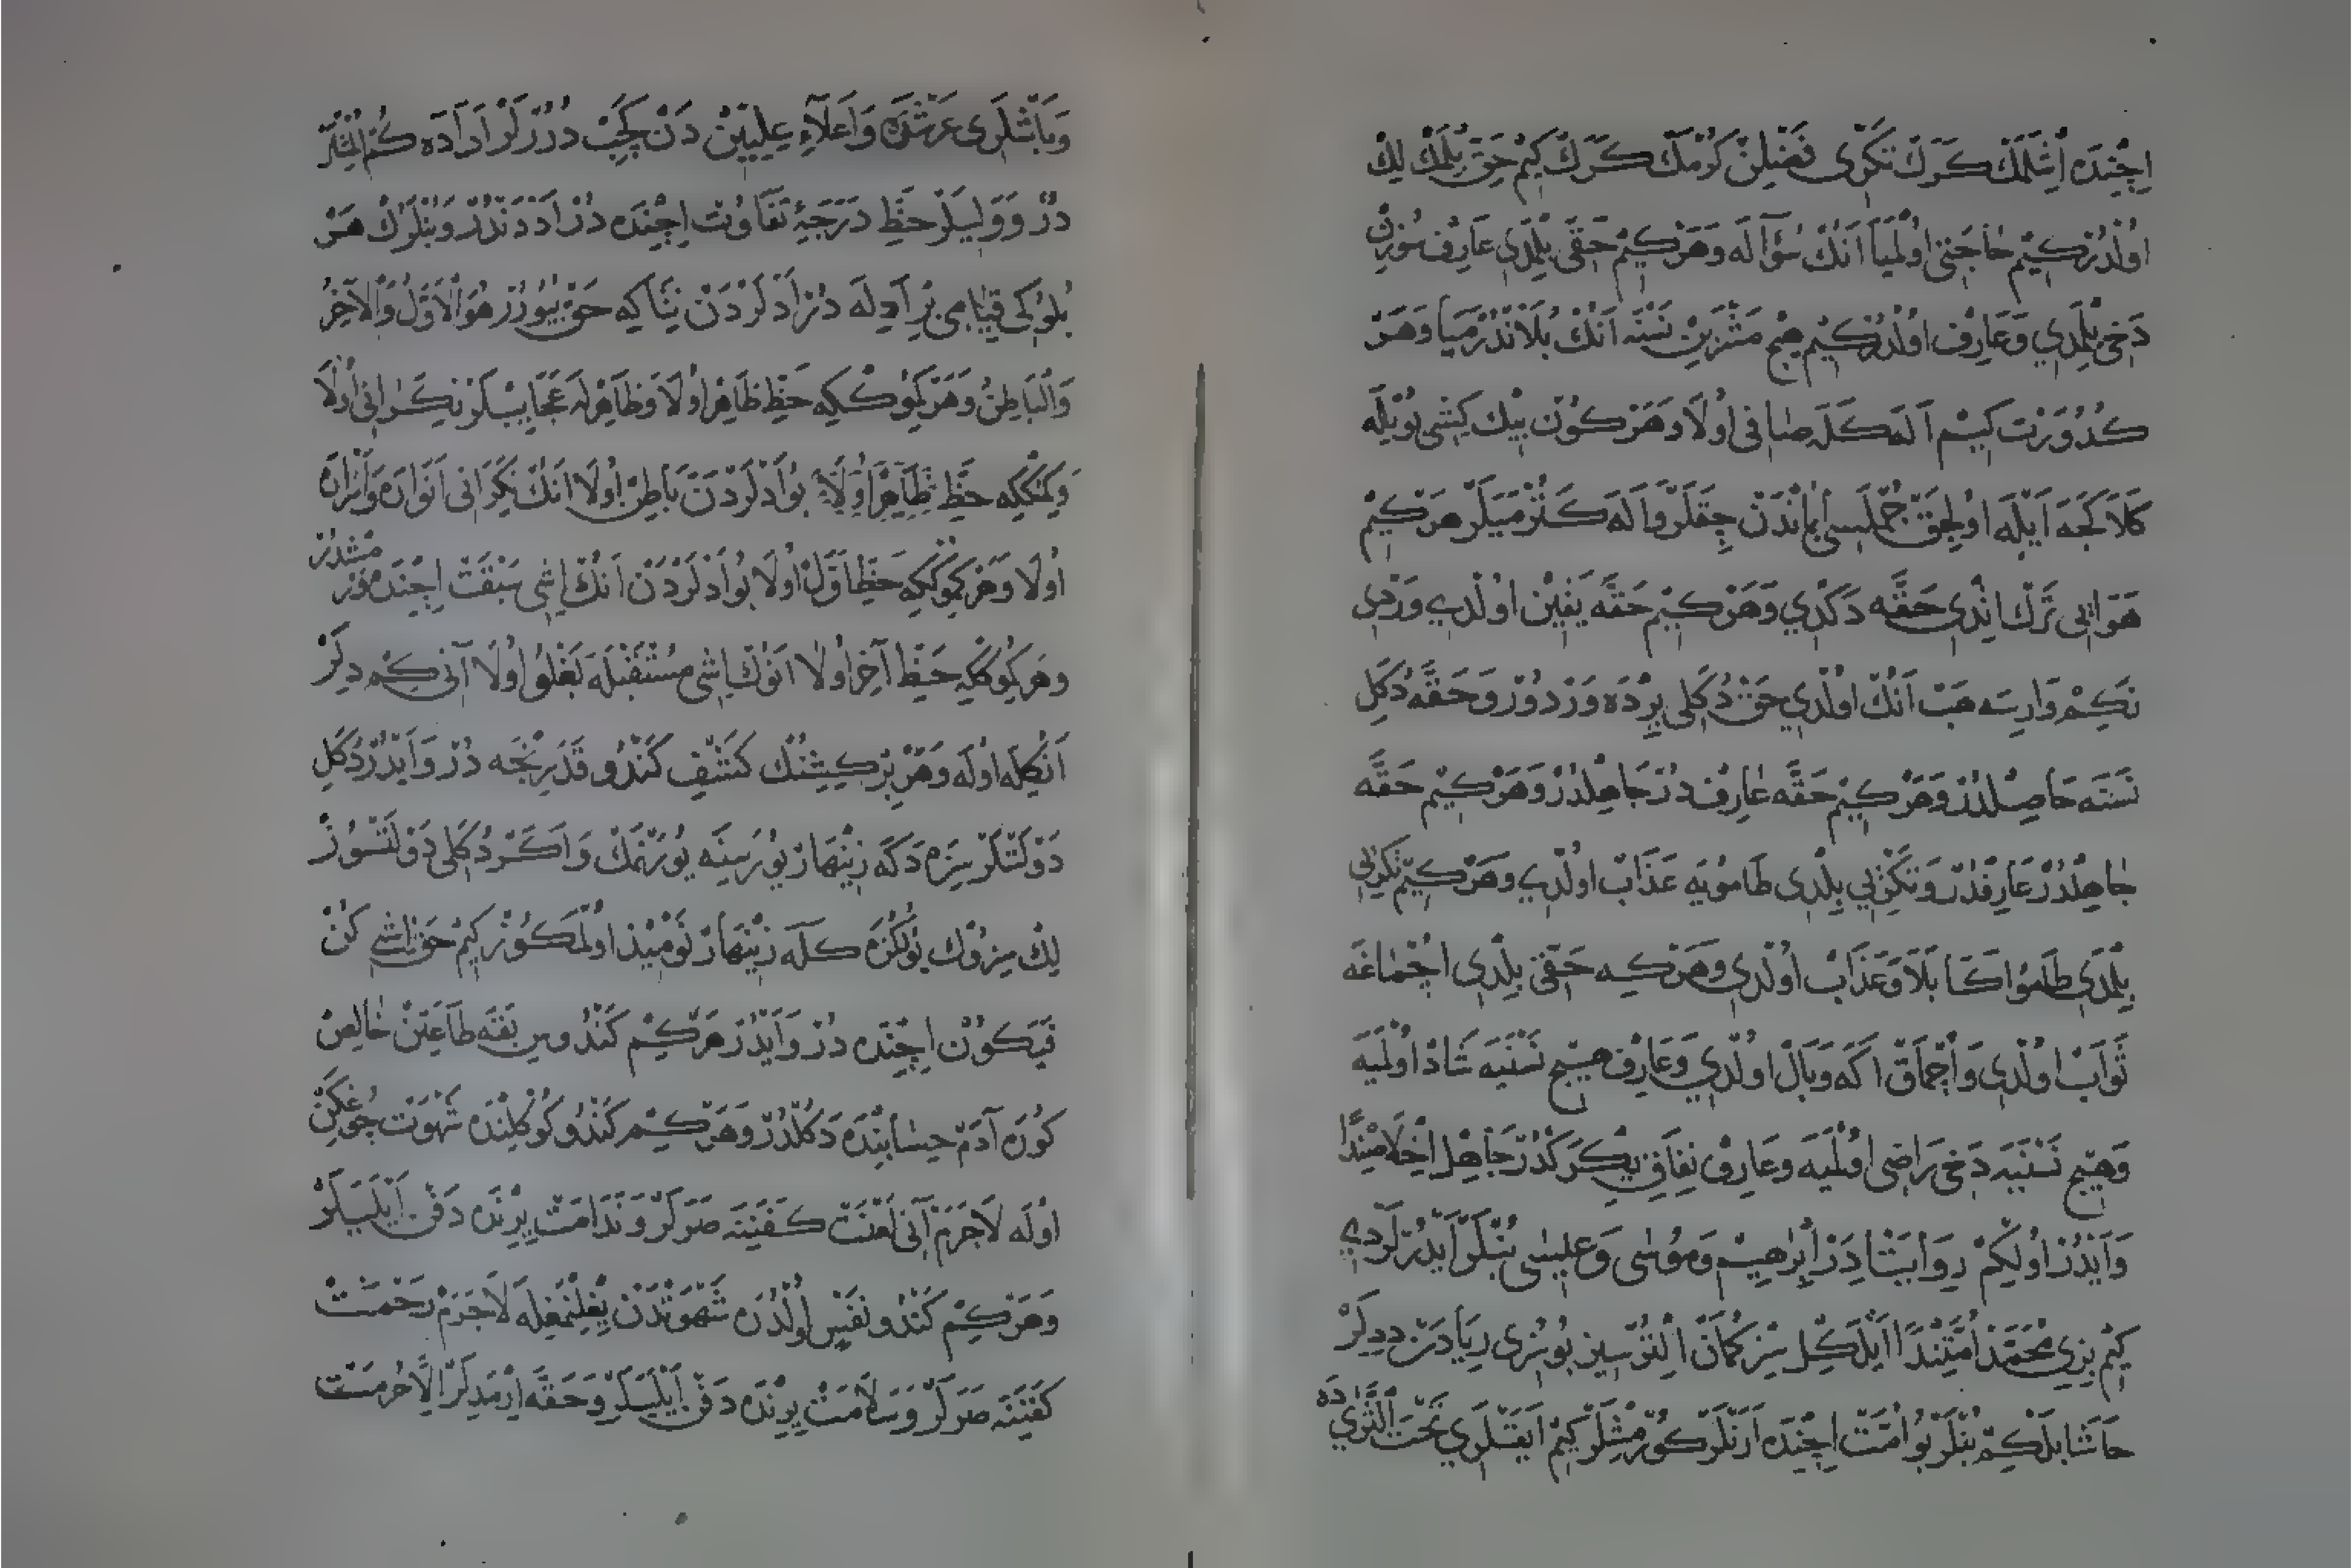 اِچِنْدَه اِشْلَمَكْ كَرَكْ تَكْرِى فَضْلِنْ كُورْمَكْ كَرَكْ كِيمْ حَقْ بِلْمَكْ لِكْ
اُولْدُرْ كِيمْ حَاجَتِى اُولْمَيَا اَنُكْ سُؤَالَه وَهَرْ كِيمْ حَقِّى بِلْدِي عَارِفْ سُوزِنْ
دَخِى بِلْدِي وَعَارِفْ اُولْدُرْ كِيمْ هِيچْ نَسْنَه اَنُكْ بُلَانْدُرْمَيَا وَهَرْ
كُدُورَتْ كِيمْ اَلَه كَلَه صَافِى اُولَا وَهَرْ كُونْ بِيكْ كِشِى بُويْلَه
كَلَا كَجَه اَيْلَه اُولِيجَقْ جُمْلَسِى اِيمَانْدَنْ چِقَلَرْ وَاَلَه كَتُرْمَيَلَرْ هَرْ كِيمْ
هَوَاىِى تَرْكْ اِتْدِى حَقَّه دَكْدِي وَهَرْ كِيمْ حَقَّه يَقِينْ اُولْدِي وَرْدِى
نَكِمْ وَارِسَه هَبْ اَنُكْ اُولْدِي حَقْ دُكَلِى يِرْدَه وَرْدُورْ وَحَقَّه دُكَلِ
نَسْنَه حَاصِلْدُرْ وَهَرْ كِيمْ حَقَّه عَارِفْ دُرْ جَاهِلْدُرْ وَهَرْ كِيمْ حَقَّه
جَاهِلْدُرْ عَارِفْدُرْ وَتَكْرِىِى بِلْدِى طَامُويَه عَذَابْ اُولْدِي وَهَرْ كِيمْ تَكْرِىِى
بِلْمَدِى طَامُو اَكَا بَلَا وَعَذَابْ اُولْدِي وَهَرْ كِه حَقِّى بِلْدِى اُچْمَاغَه
ثَوَابْ اُولْدِى وَاُچْمَاقْ اَكَه وَبَالْ اُولْدِي وَعَارِفْ هِيچْ نَسْنَيَه شَادْ اُولْمَيَه
وَهِيچْ نَسْنَيَه دَخِى رَاضِى اُولْمَيَه وَعَارِفْ نِفَاقِى يِكْرَكْدُرْ جَاهِلْ اِخْلَاصِنْدَا
وَاَيْدُرْ اُولْكِمْ رِوَايَتْدَا دِرْ اِبْرَاهِيمْ وَمُوسَى وَعِيسَى بُنْلَرْ اَيْدُرْلَرْدِي
كِيمْ بِزِي مُحَمَّدْ اُمَّتِنْدَا اَيْلَكِلْ سِزْ كُمَانْ اِلْتُرْسِيزْ بُو سُزِى رِيَادَنْ دِدِلَرْ
حَاشَا بَلْكِمْ بُنْلَرْ بُو اُمَّتْ اِچِنْدَه اَرَنْلَرْ كُورْمِشْلَرْ كِيمْ اَيَقْلَرِي تَحْتَ الثَّرَى دَه
وَبَاشْلَرِى عَرْشْدَه وَاَعْلَاءِ عِلِّيِّينْ دَنْ كَچِبْ دُرُرْلَرْ اَرَادَه كُمْ اُلْمِشْلَرْ
دُرْ وَوَلِيلَرْ حَظِّ دَرَجَۀِ تَفَاوُتْ اِچِنْدَه دُرْ اَدْ دَنْدُرْ وَبُنْلَرُكْ هَرْ
بُلُوكِى قِيَامِى بِرْ اَدِلَه دُرْ اَدْلَرْدَنْ نِتَاكِه حَقْ بُيُورُرْ هُوَ الْاَوَّلُ وَالْآخِرُ
وَالْبَاطِنُ وَهَرْ كِمُوكْكِه حَظِّ ظَاهِرْ اُولَا وَظَاهِرْلَه عَجَايِبْلَرْنِ كَرَانِى اُولَا
وَكِمُكْكِه حَظِّ ظَاهِرْ اُولَا بُو اَدْلَرْدَنْ بَاطِنْ اُولَا اَنُكْ نِكَرَانِى اَنْوَارَه وَاَسْرَارَه
اُولَا وَهَرْ كِمُوكْكِه حَظِّ اَوَّلْ اُولَا بُو اَدْلَرْدَنْ اَنُكْ اِشِى سَبْقَتْ اِچِنْدَه دُرْ مِشْدُرْ
وهَرْ كِمُوكْكِه حَظِّ آخِرْ اُولَا اَنُوكْ اِشِى مُسْتَقْبَلَه بَغْلُو اُولَا آنِى كِمْ دِلَرْ
اَنُكْلَه اُولَه وَهَرْ بِرْ كِشِنُكْ كَشْفِ كَنْدُو قَدْرِنْجَه دُرْ وَاَيْدُرْ دُكَلِ
دَوْلَتْلَرْ سِزَه دَكَه زِينْهَارْ يُورَسِنَه يُورَنْمَكْ وَاَكَرْ دُكَلِى دَوْلَتْسُوزْ
لِكْ سِزُوكْ يُولُكُزَه كَلَه زِينْهَارْ نَوْمِيذْ اُولْمَكُوزْ كِيمْ حَقْ اِشِى كُنْ
فَيَكُونْ اِچِنْدَه دُرْ وَاَيْدُرْ هَرْ كِيمْ كَنْدُوسِنِ يَقَه طَاعَتِنْ خَالِصْ
كُورَه آدَمْ حِسَابِنْدَه دَكُلْدُرْ وَهَرْ كِيمْ كَنْدُو كُوكْلِنْدَه شَهْوَتْ چُوغْكِنْ
اُولَه لَاجَرَمْ آنِى لَعْنَتْ كَفَنِنَه صَرَلَرْ وَنَدَامَتْ يِرِنْدَه دَفِنْ اَيْلَيَلَرْ
وَهَرْ كِيمْ كَنْدُو نَفْسِ اُولْدُرَه شَهْوَتْدَنْ يِغِلْمَغِلَه لَاجَرَمْ رَحْمَتْ
كَفَنِنَه صَرَلَرْ وَسَلَامَتْ يِرِنْدَه دَفِنْ اَيْلَيَلَرْ وَحَقَّه اِرْمَدِلَرْ اِلَّا حُرْمَتْ